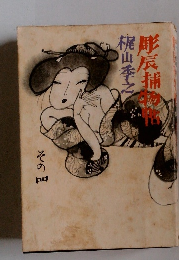 彫辰捕物帖
梶山季之
その四